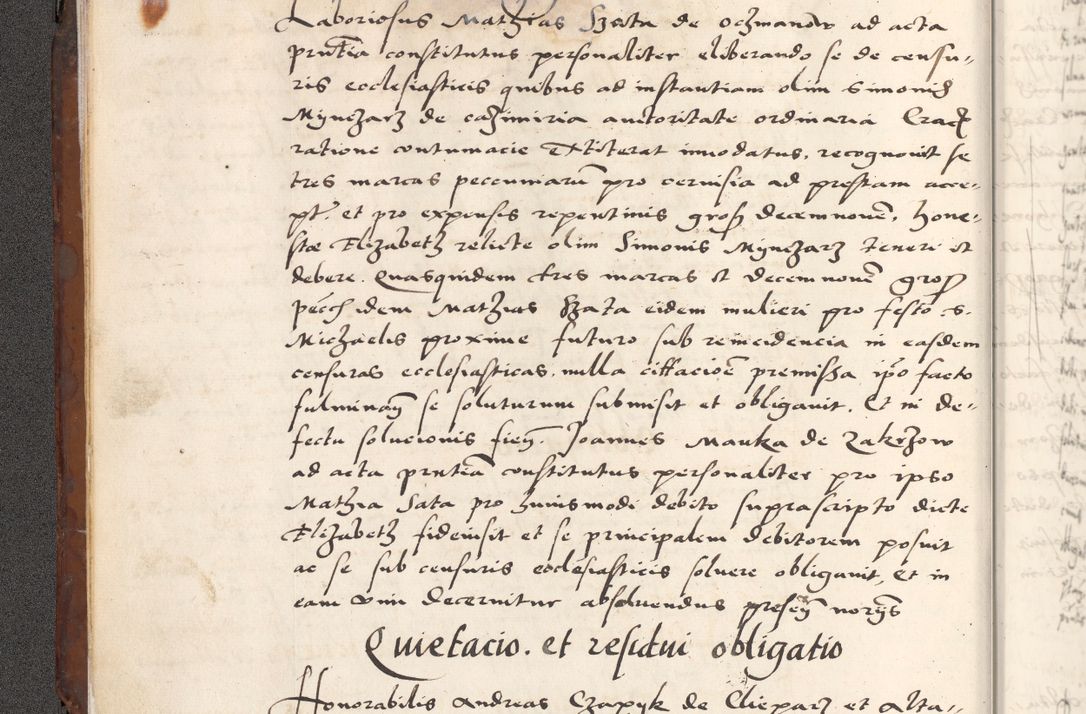 Laboriosus Mathias Szata de oczmanow ad acta
prntia constitutus personaliter eliberando se de censu-
ris ecclesiasticis quibus ad instantiam olim Simonis
Mynczarz de cazimiria auctoritate ordinaria Crac
ratione contumacie extiterat innodatus, recognovit se
tres marcas peccuniarum pro cervisia ad prestiam acce-
pt. et pro expensis repentinis gros decemnovem, hone-
stae Elizabeth relicte olim Simonis Mynczarz teneri et
debere. Quasquidem tres marcas et decemnovem gros
idem Mathias Szata eidem mulieri pro festo S.
Michaelis proxime futuro sub reincidencia in easdem
censuras ecclesiasticas, nulla cittacioe premissa ipso facto
fulminan se soluturum submisit et obligavit. Et in de-
fectu solucionis fien. Joannes Mauka de Zakrzow
ad acta prntia constitutus personaliter pro ipso
Mathia Sata pro huiusmodi debito suprascripto dicte
Elizabeth fideiusit et se principalem debitorem posuit
ac se sub censuris ecclesiasticis solvere obligavit, Et in
eam vim decernitur absolvendus presen
Quietacio. et residui obligatio
Honorabilis Andreas Czapyk de Clieparz et Alta-